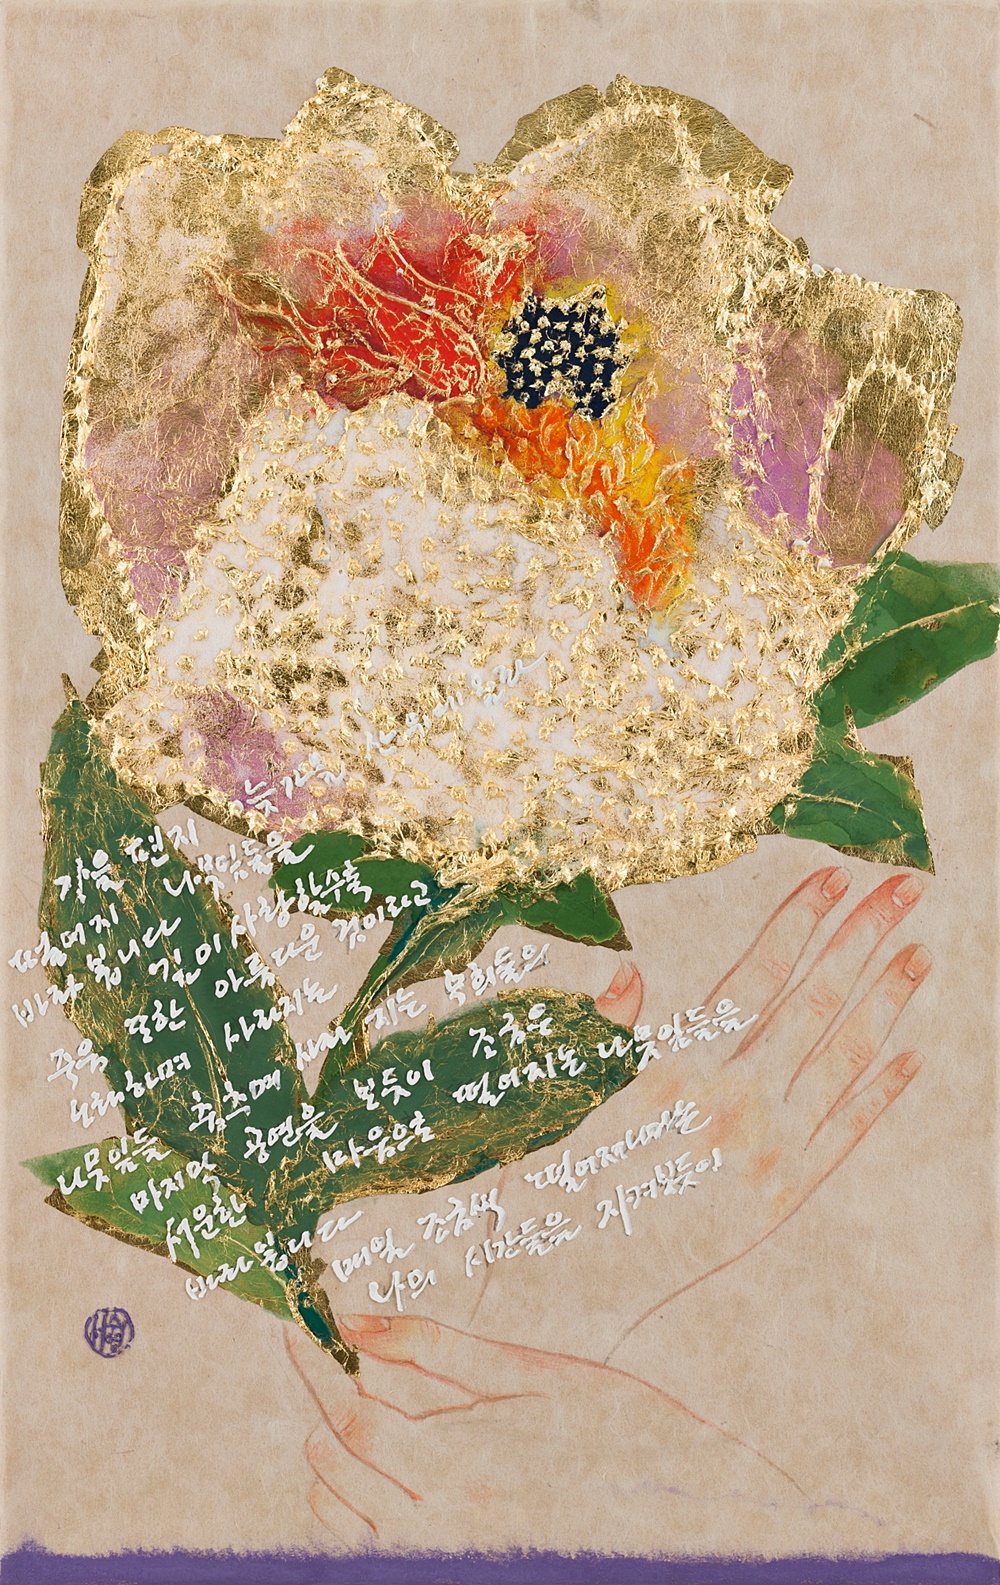 늦가을 산 위에 올라
떨어지 나뭇잎들을
바라 봅니다 깊이 사랑할수록
죽음 또한 아름다운 것이라고
노래하며 사라지는
나뭇잎들 춤추며 사라지는 무희들의
마지막 공연을 보듯이 조금은
서운한 마음으로 떨어지는 나뭇잎들을
바라봅니다
매일 조금씩 떨어져나가는
나의 시간들을 지켜보듯이